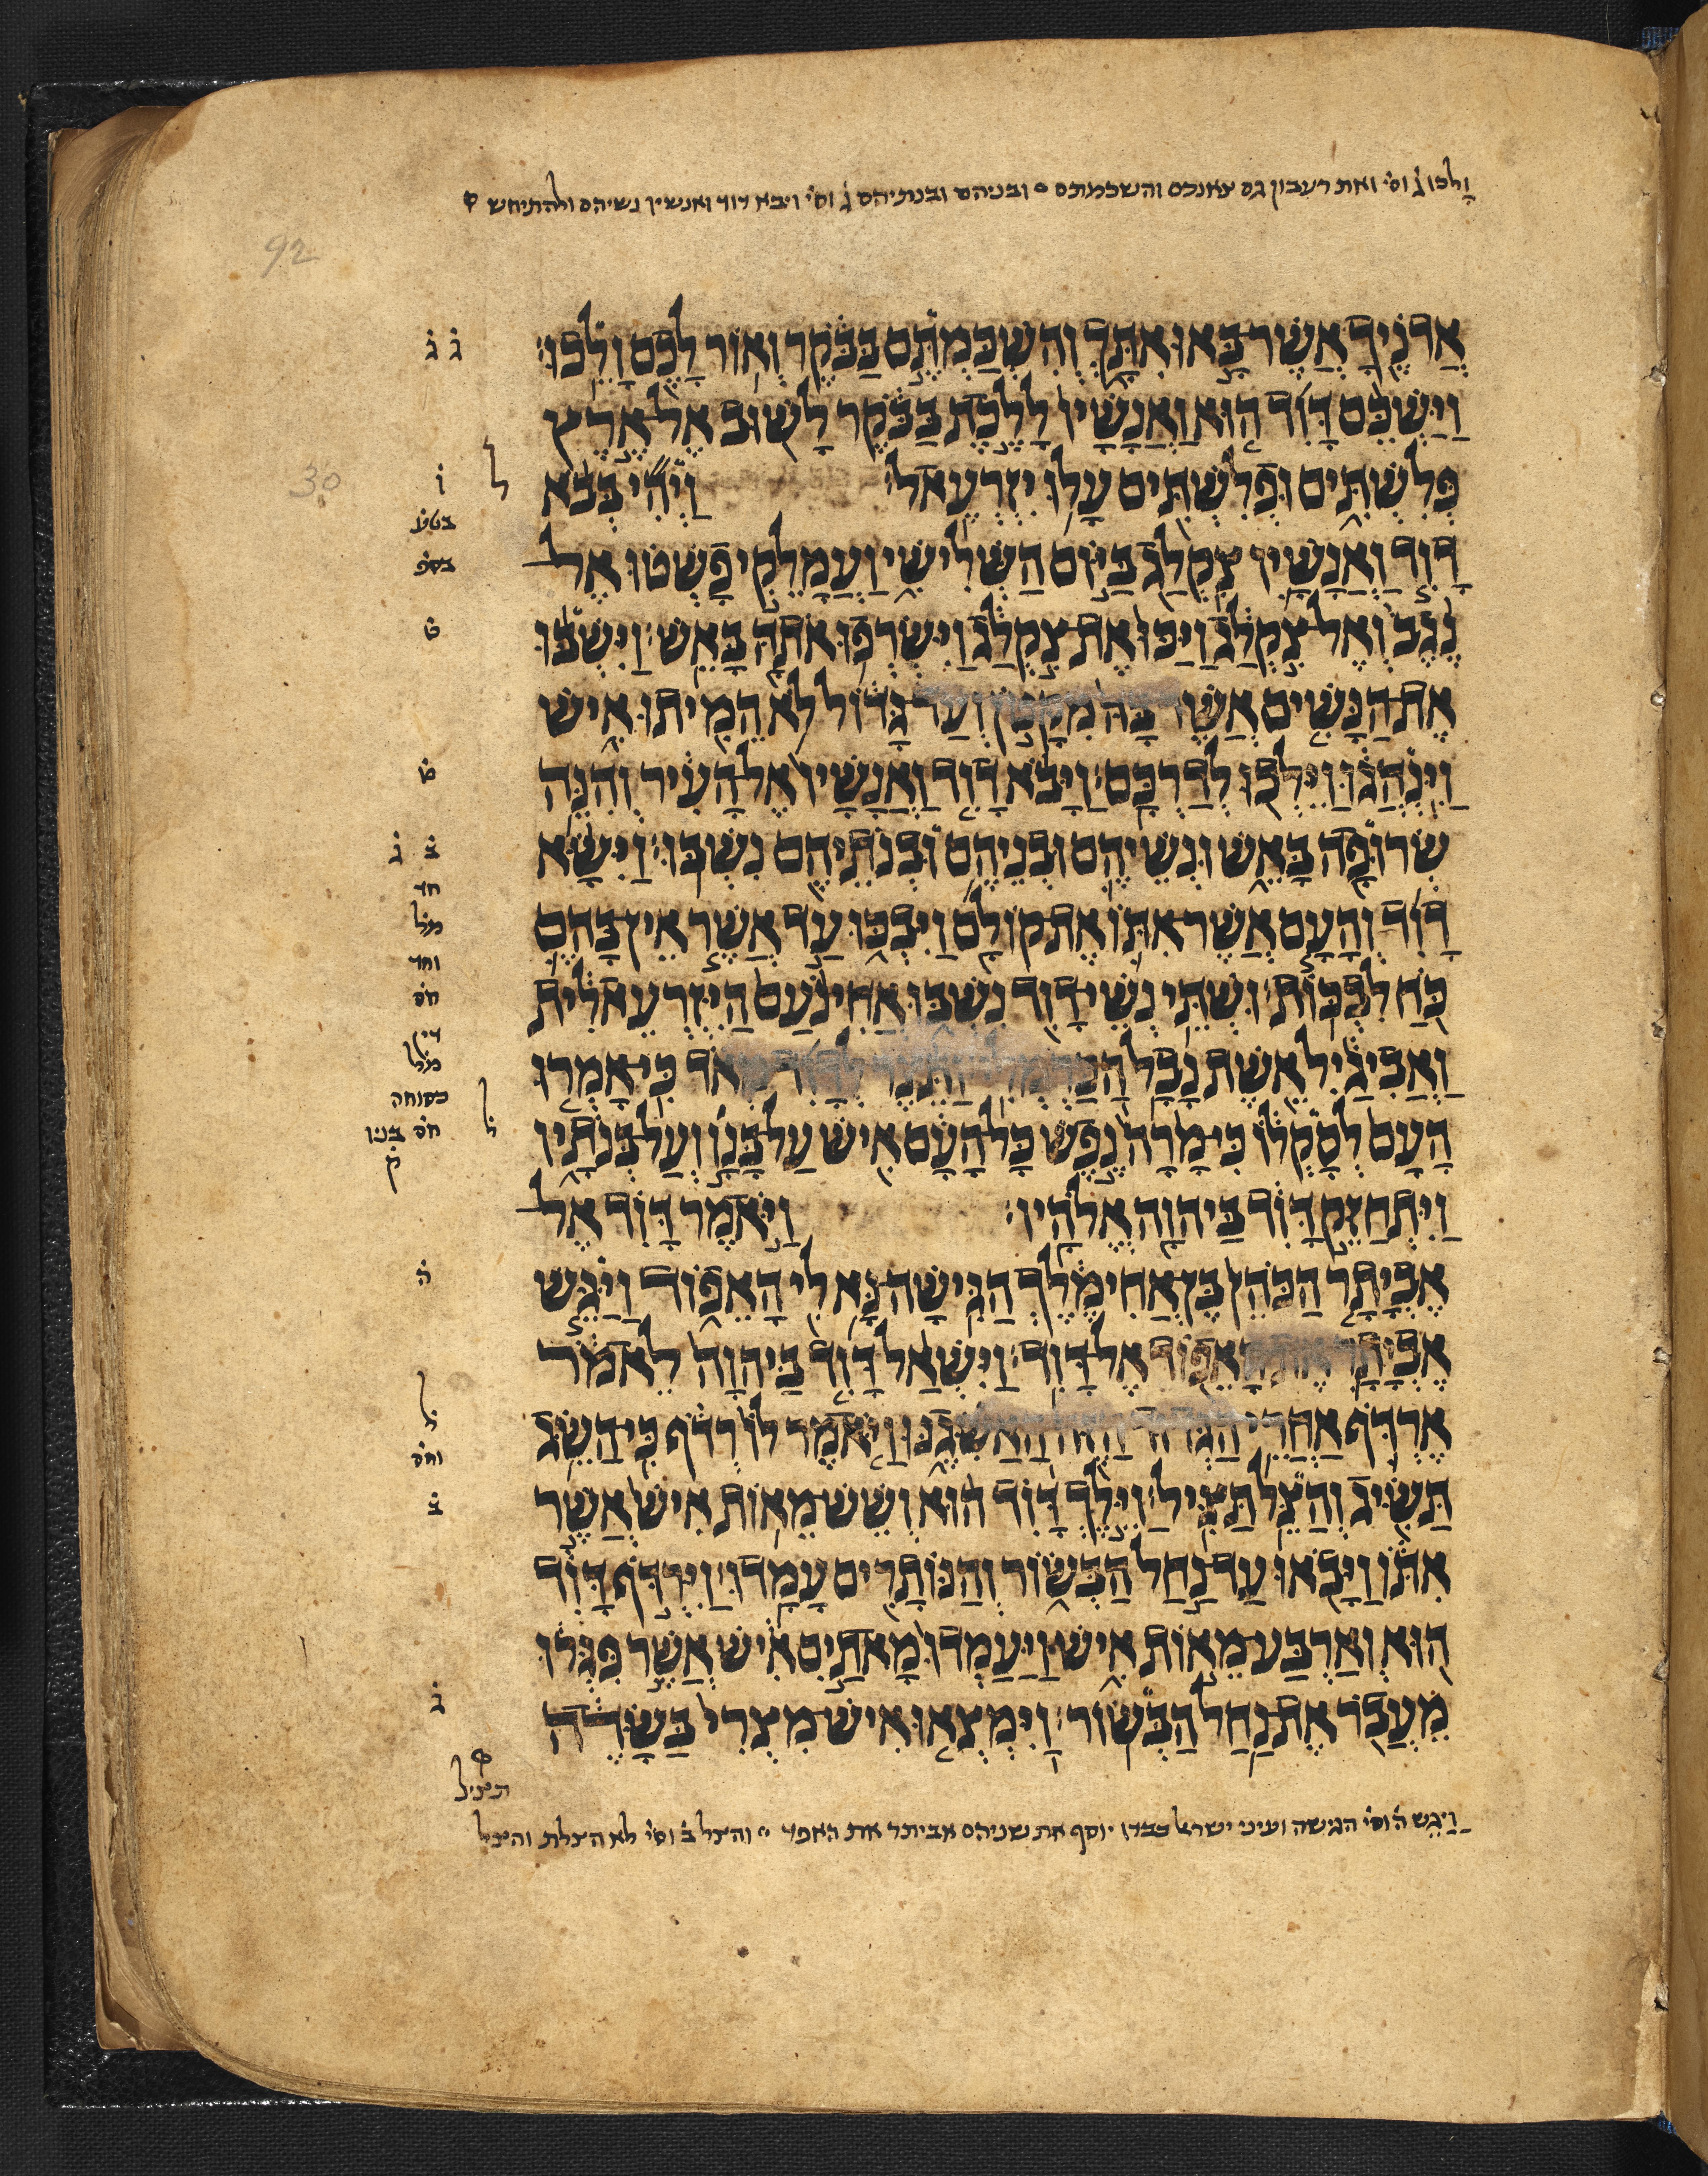 ולכו ג̇ וס̇י ואת רעבון גם צאנכם והשכמתם ° ובניהם ובנתיהם ג̇ וס̇י ויבא דוד ואנשיו נשיהם ולהתיחש
92
אֲדֹנֶיךָ אֲשֶׁר־בָּאוּ אִתָּךְ וְהִשְׁכַּמְתֶּם בַּבֹּקֶר וְאוֹר לָכֶם וָלֵכוּ׃ ג̇ ג̇
וַיַּשְׁכֵּם דָּוִד הוּא וַאֲנָשָׁיו לָלֶכֶת בַּבֹּקֶר לָשׁוּב אֶל־אֶרֶץ
פְּלִשְׁתִּים וּפְלִשְׁתִּים עָלוּ יִזְרְעֶאל׃ וַיְהִי בְּבֹא ל ו̇ 30
דָוִד וַאֲנָשָׁיו צִקְלַג בַּיּוֹם הַשְּׁלִישִׁי וַעֲמָלֵקִי פָשְׁטוּ אֶל־ בטע בספ
נֶגֶב וְאֶל־צִקְלַג וַיַּכּוּ אֶת־צִקְלַג וַיִּשְׂרְפוּ אֹתָהּ בָּאֵשׁ׃ וַיִּשְׁבּוּ ט̇
אֶת־הַנָּשִׁים אֲשֶׁר־בָּהּ מִקָּטֹן וְעַד־גָּדוֹל לֹא הֵמִיתוּ אִישׁ
וַיִּנְהֲגוּ וַיֵּלְכוּ לְדַרְכָּם׃ וַיָּבֹא דָוִד וַאֲנָשָׁיו אֶל־הָעִיר וְהִנֵּה ט̇
שְׂרוּפָה בָּאֵשׁ וּנְשֵׁיהֶם וּבְנֵיהֶם וּבְנֹתֵיהֶם נִשְׁבּוּ׃ וַיִּשָּׂא ב̇ ג̇
דָוִד וְהָעָם אֲשֶׁר־אִתּוֹ אֶת־קוֹלָם וַיִּבְכּוּ עַד אֲשֶׁר אֵין־בָּהֶם חד מל וחד
כֹּחַ לִבְכּוֹת׃ וּשְׁתֵּי נְשֵׁי־דָוִד נִשְׁבּוּ אֲחִינֹעַם הַיִּזְרְעֵאלִית חס דין
וַאֲבִיגַיִל אֵשֶׁת נָבָל הַכַּרְמְלִי׃ וַתֵּצֶר לְדָוִד מְאֹד כִּי־אָמְרוּ מל כסוחה
הָעָם לְסָקְלוֹ כִּי־מָרָה נֶפֶשׁ כָּל־הָעָם אִישׁ עַל־בָּנָו וְעַל־בְּנֹתָיו ל̇ חס בניו ק̇
וַיִּתְחַזֵּק דָּוִד בַּיהוָה אֱלֹהָיו׃ וַיֹּאמֶר דָּוִד אֶל־
אֶבְיָתָר הַכֹּהֵן בֶּן־אֲחִימֶלֶךְ הַגִּישָׁה־נָּא לִי הָאֵפוֹד וַיַּגֵּשׁ ה̇
אֶבְיָתָר אֶת־הָאֵפוֹד אֶל־דָּוִד׃ וַיִּשְׁאַל דָּוִד בַּיהוָה לֵאמֹר
אֶרְדֹּף אַחֲרֵי הַגְּדוּד־הַזֶּה הַאַשִּׂגֶנּוּ וַיֹּאמֶר לוֹ רְדֹף כִּי־הַשֵּׂג ל̇ וחס
תַּשִּׂיג וְהַצֵּל תַּצִּיל׃ וַיֵּלֶךְ דָּוִד הוּא וְשֵׁשׁ־מֵאוֹת אִישׁ אֲשֶׁר ב̇
אִתּוֹ וַיָּבֹאוּ עַד־נַחַל הַבְּשׂוֹר וְהַנּוֹתָרִים עָמָדוּ׃ וַיִּרְדֹּף דָּוִד
הוּא וְאַרְבַּע־מֵאוֹת אִישׁ וַיַּעַמְדוּ מָאתַיִם אִישׁ אֲשֶׁר פִּגְּרוּ
מֵעֲבֹר אֶת־נַחַל הַבְּשׂוֹר׃ וַיִּמְצְאוּ אִישׁ־מִצְרִי בַּשָּׂדֶה ג̇
תציל
ויגש ה̇ וס̇י הגישה ועיני ישראל כבדו יוסף את שניהם אביתר את האפד ° והצל ב̇ וס̇י לא הצלת והצל